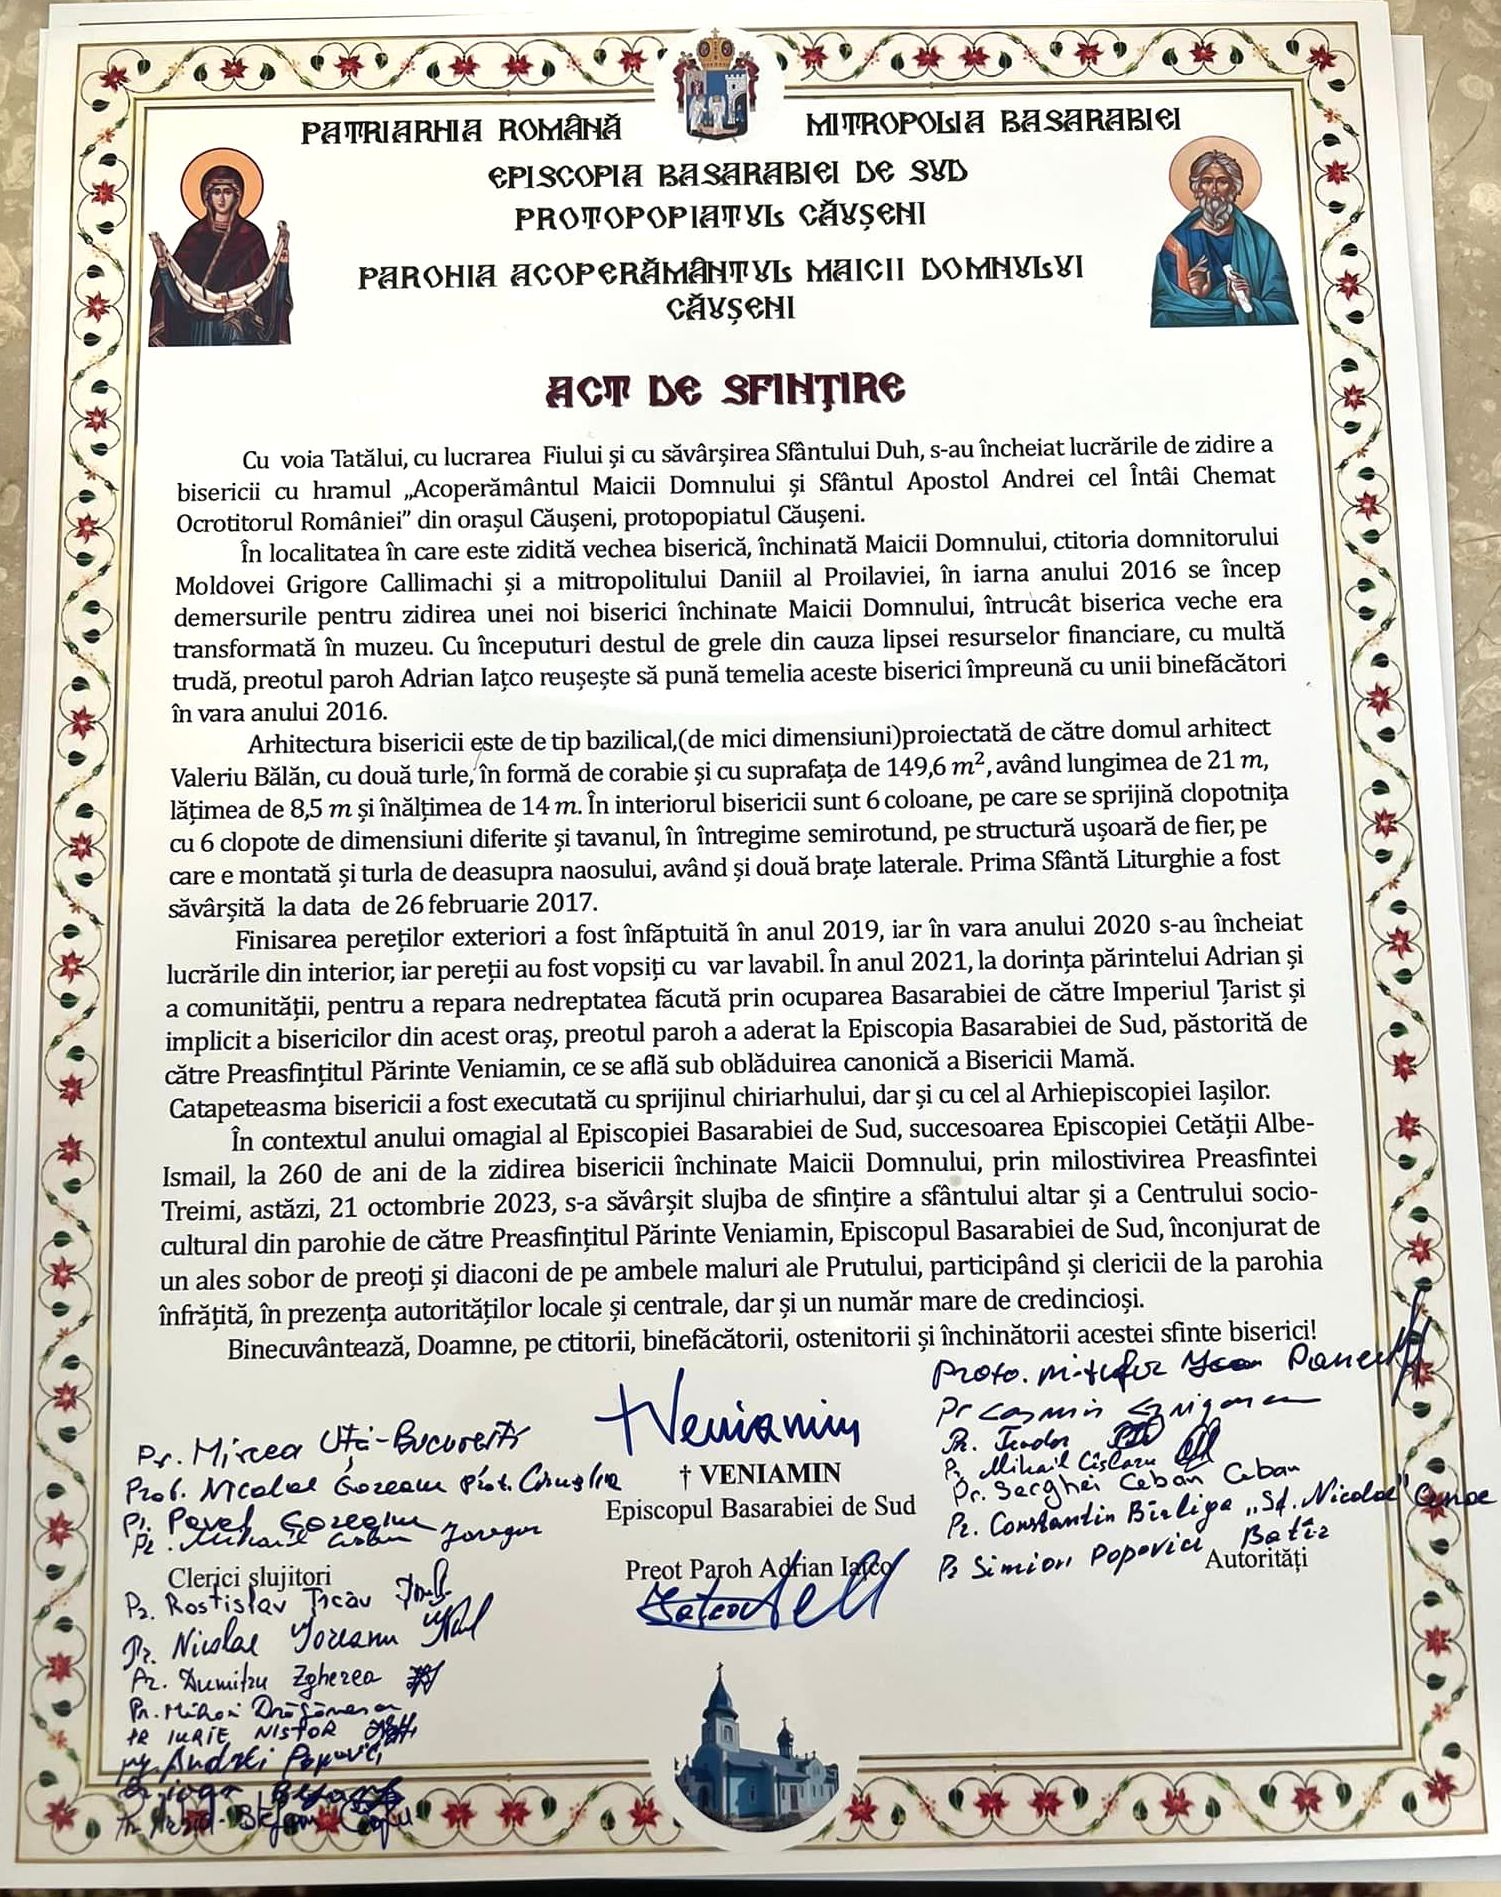 PATRIARHIA ROMÂNĂ
MITROPOLIA BASARABIEI
EPISCOPIA BASARABIEI DE SUD
PROTOPOPIATUL CĂUȘENI
PAROHIA ACOPERĂMÂNTUL MAICII DOMNULUI
CĂUȘENI
ACT DE SFINȚIRE
Cu voia Tatălui, cu lucrarea Fiului și cu săvârșirea Sfântului Duh, s-au încheiat lucrările de zidire a
bisericii cu hramul „Acoperământul Maicii Domnului și Sfântul Apostol Andrei cel Întâi Chemat
Ocrotitorul României” din orașul Căușeni, protopopiatul Căușeni.
În localitatea în care este zidită vechea biserică, închinată Maicii Domnului, ctitoria domnitorului
Moldovei Grigore Callimachi și a mitropolitului Daniil al Proilaviei, în iarna anului 2016 se încep
demersurile pentru zidirea unei noi biserici închinate Maicii Domnului, întrucât biserica veche era
transformată în muzeu. Cu începuturi destul de grele din cauza lipsei resurselor financiare, cu multă
trudă, preotul paroh Adrian Iațco reușește să pună temelia aceste biserici împreună cu unii binefăcători
în vara anului 2016.
Arhitectura bisericii este de tip bazilical,(de mici dimensiuni)proiectată de către domul arhitect
Valeriu Bălăn, cu două turle, în formă de corabie și cu suprafața de 149,6 m², având lungimea de 21 m,
lățimea de 8,5 m și înălțimea de 14 m. În interiorul bisericii sunt 6 coloane, pe care se sprijină clopotnița
cu 6 clopote de dimensiuni diferite și tavanul, în întregime semirotund, pe structură ușoară de fier, pe
care e montată și turla de deasupra naosului, având și două brațe laterale. Prima Sfântă Liturghie a fost
săvârșită la data de 26 februarie 2017.
Finisarea pereților exteriori a fost înfăptuită în anul 2019, iar în vara anului 2020 s-au încheiat
lucrările din interior, iar pereții au fost vopsiți cu var lavabil. În anul 2021, la dorința părintelui Adrian și
a comunității, pentru a repara nedreptatea făcută prin ocuparea Basarabiei de către Imperiul Țarist și
implicit a bisericilor din acest oraș, preotul paroh a aderat la Episcopia Basarabiei de Sud, păstorită de
către Preasfințitul Părinte Veniamin, ce se află sub oblăduirea canonică a Bisericii Mamă.
Catapeteasma bisericii a fost executată cu sprijinul chiriarhului, dar și cu cel al Arhiepiscopiei Iașilor.
În contextul anului omagial al Episcopiei Basarabiei de Sud, succesoarea Episcopiei Cetății Albe-
Ismail, la 260 de ani de la zidirea bisericii închinate Maicii Domnului, prin milostivirea Preasfintei
Treimi, astăzi, 21 octombrie 2023, s-a săvârșit slujba de sfințire a sfântului altar și a Centrului socio-
cultural din parohie de către Preasfințitul Părinte Veniamin, Episcopul Basarabiei de Sud, înconjurat de
un ales sobor de preoți și diaconi de pe ambele maluri ale Prutului, participând și clericii de la parohia
înfrățită, în prezența autorităților locale și centrale, dar și un număr mare de credincioși.
Binecuvântează, Doamne, pe ctitorii, binefăcătorii, ostenitorii și închinătorii acestei sfinte biserici!
Pr. Mircea Uță-București
Prot. Nicolae Gozeanu
Pr. Pavel
Pr. Mihail
Clerici slujitori
Pr. Rostislav Țicău
Pr. Nicolae
Pr. Dumitru Zgherea
Pr. Mihai Drăgănescu
Pr IURIE NISTOR
Andrei Popovici
Ștefan
†Veniamin
† VENIAMIN
Episcopul Basarabiei de Sud
Preot Paroh Adrian Iațco
Proto.
Pr Cosmin
Pr. Teodor
Pr Mihail Cîșlaru
Pr. Serghei Ceban Ceban
Pr. Constantin Bîrliga „Sf. Nicolae”
Pr Simion Popovici
Autorități